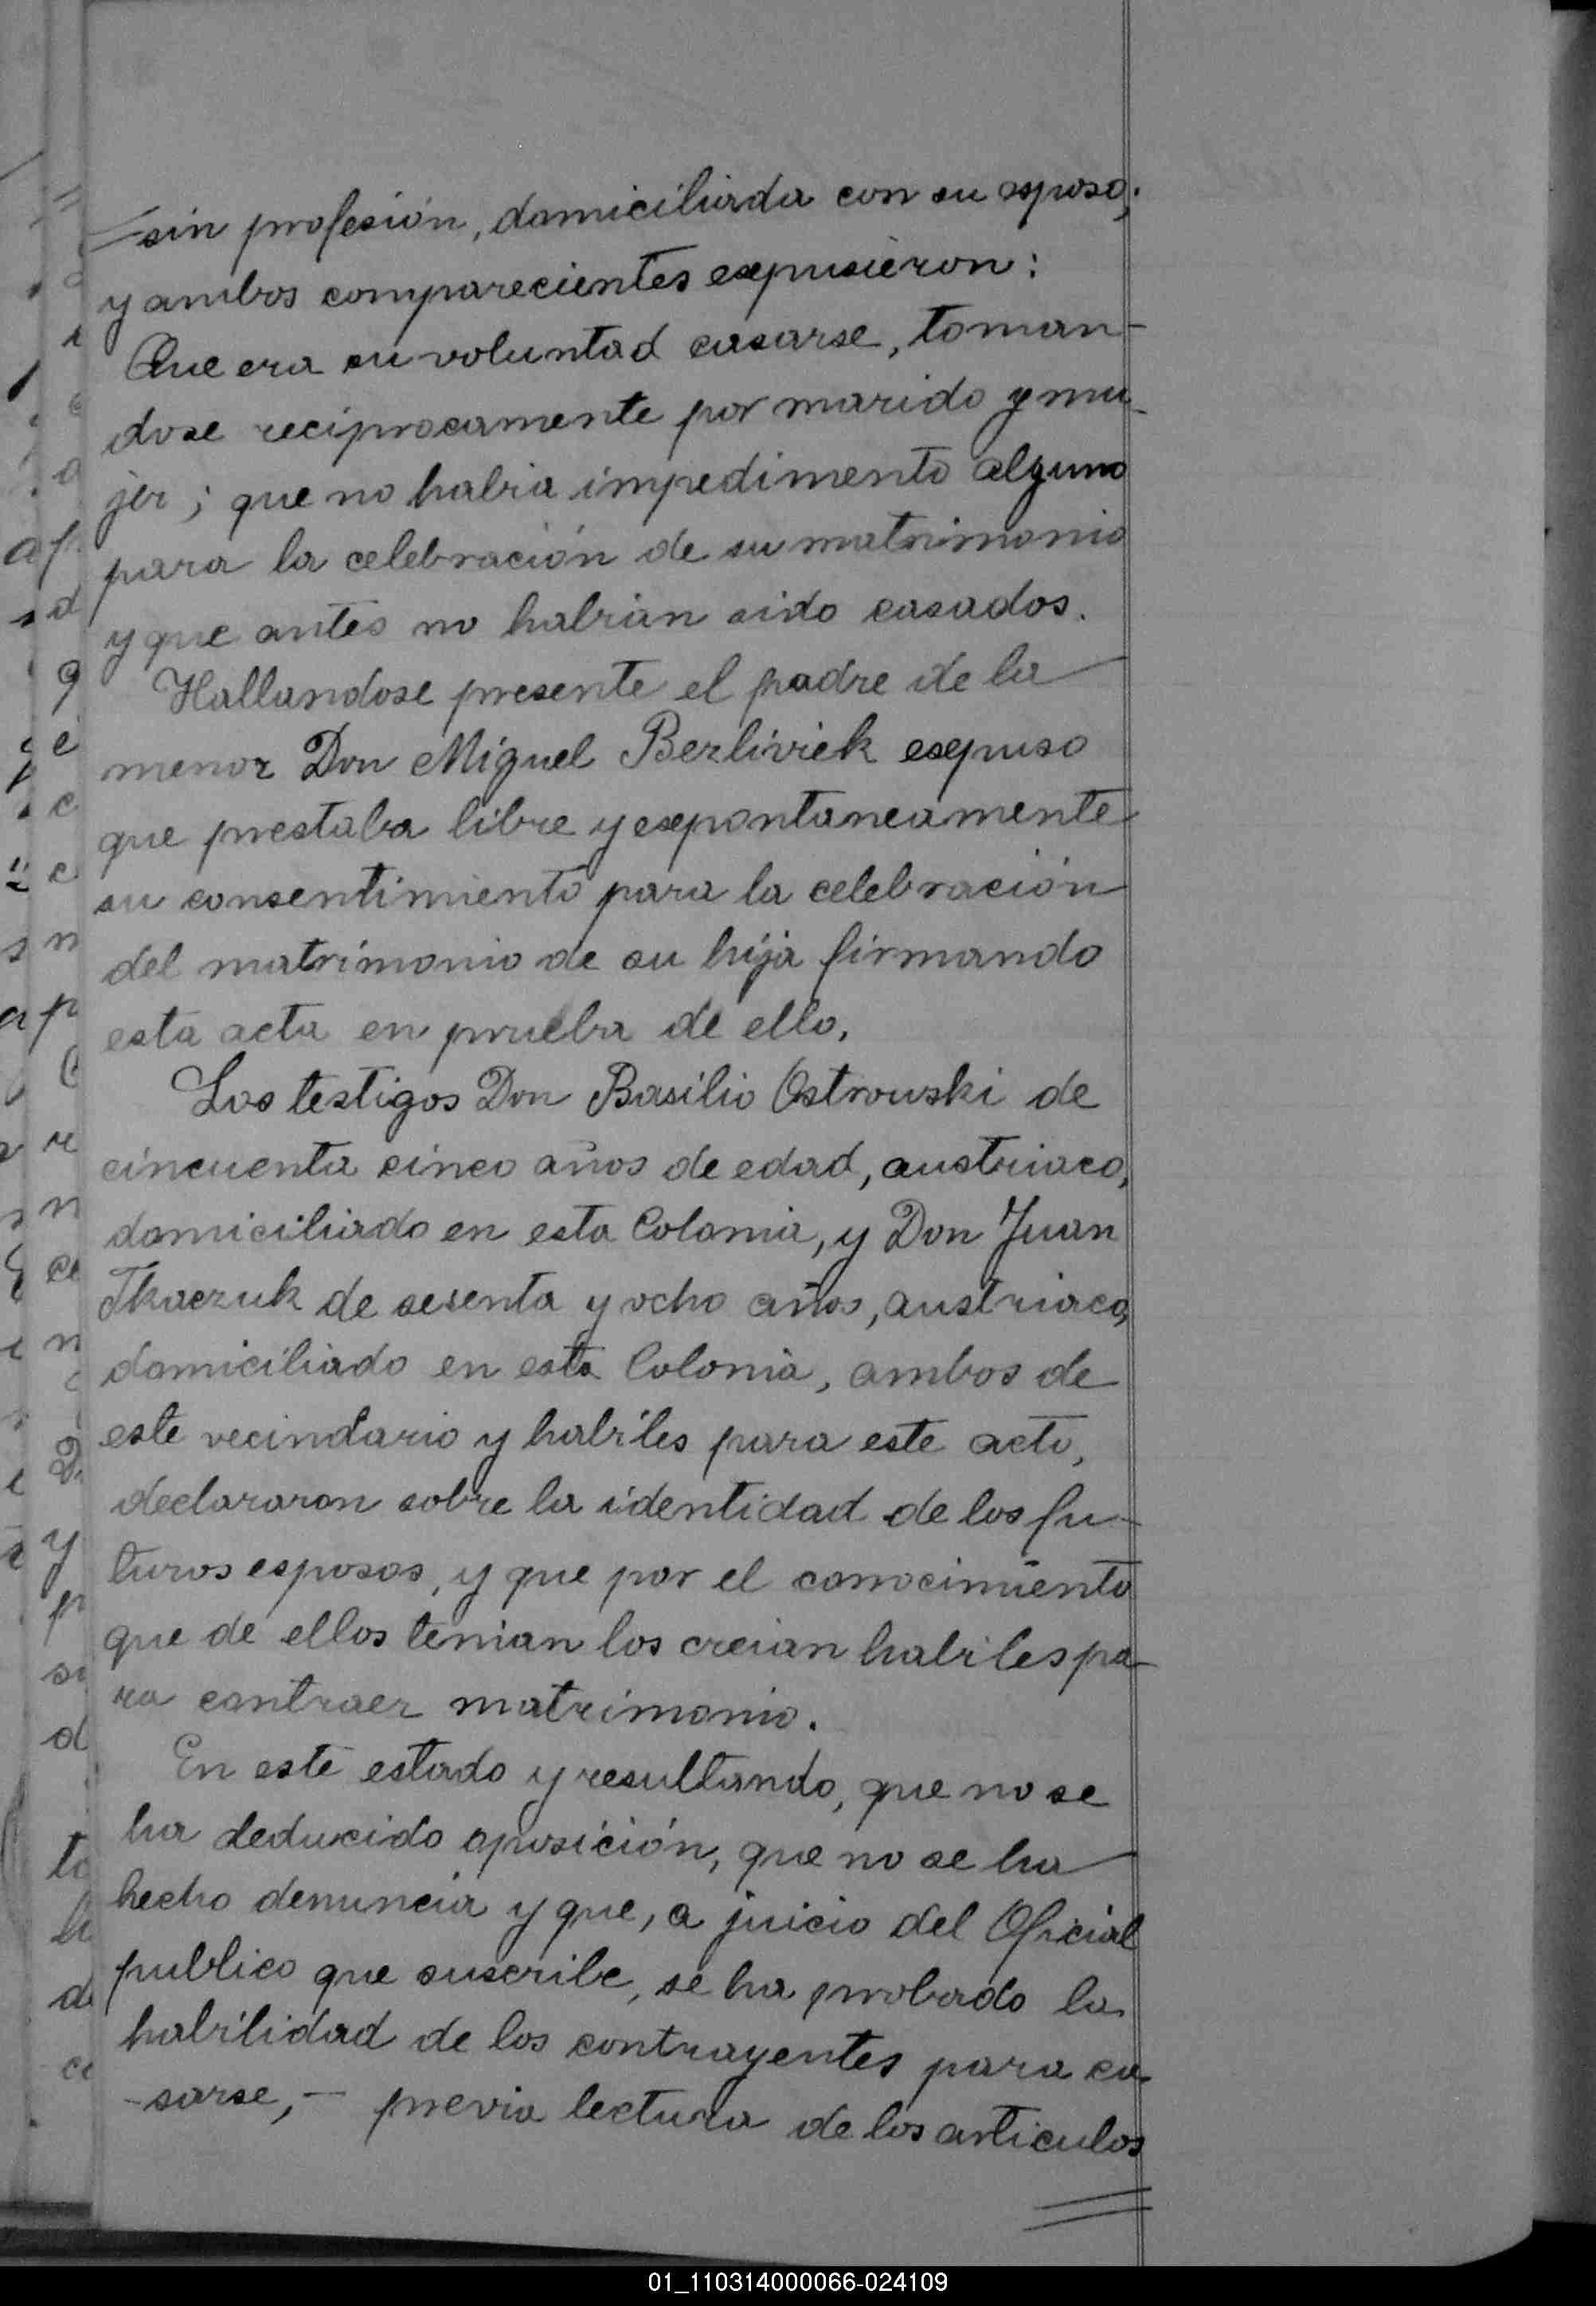 sin profesión, domiciliada con su esposo;
y ambos comparecientes expusieron:
Que era su voluntad casarse, toman-
dose reciprocamente por marido y mu-
jer; que no habia impedimento alguno
para la celebración de su matrimonio
y que antes no habian sido casados.
Hallandose presente el padre de la
menor Don Miguel Berliviek expuso
que prestaba libre y expontaneamente
su consentimiento para la celebración
del matrimonio de su hija firmando
esta acta en prueba de ello.
Los testigos Don Basilio Ostrowski de
cincuenta cinco años de edad, austriaco,
domiciliado en esta Colonia, y Don Juan
Tkaczuk de sesenta y ocho años, austriaco,
domiciliado en esta Colonia, ambos de
este vecindario y habiles para este acto,
declararon sobre la identidad de los fu-
turos esposos, y que por el conocimiento
que de ellos tenian los creian habiles pa-
ra contraer matrimonio.
En este estado y resultando, que no se
ha deducido oposición, que no se ha
hecho denuncia y que, a juicio del Oficial
publico que suscribe, se ha probado la
habilidad de los contrayentes para ca-
sarse, - previa lectura de los articulos
01_110314000066-024109